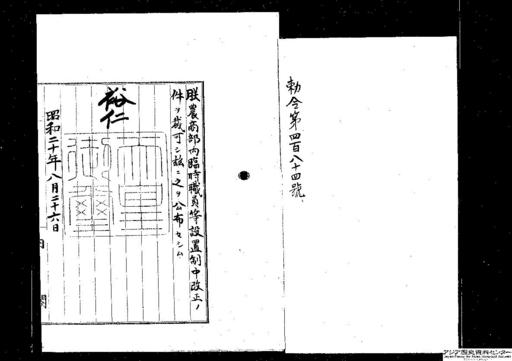 勅令第四百八十四號
朕農商部內臨時職員等設置制中改正ノ
件ヲ裁可シ玆ニ之ヲ公布セシム
裕仁
昭和二十年八月二十六日
内 閣
アジア歴史資料センター
Japan Center for Asian Historical Records